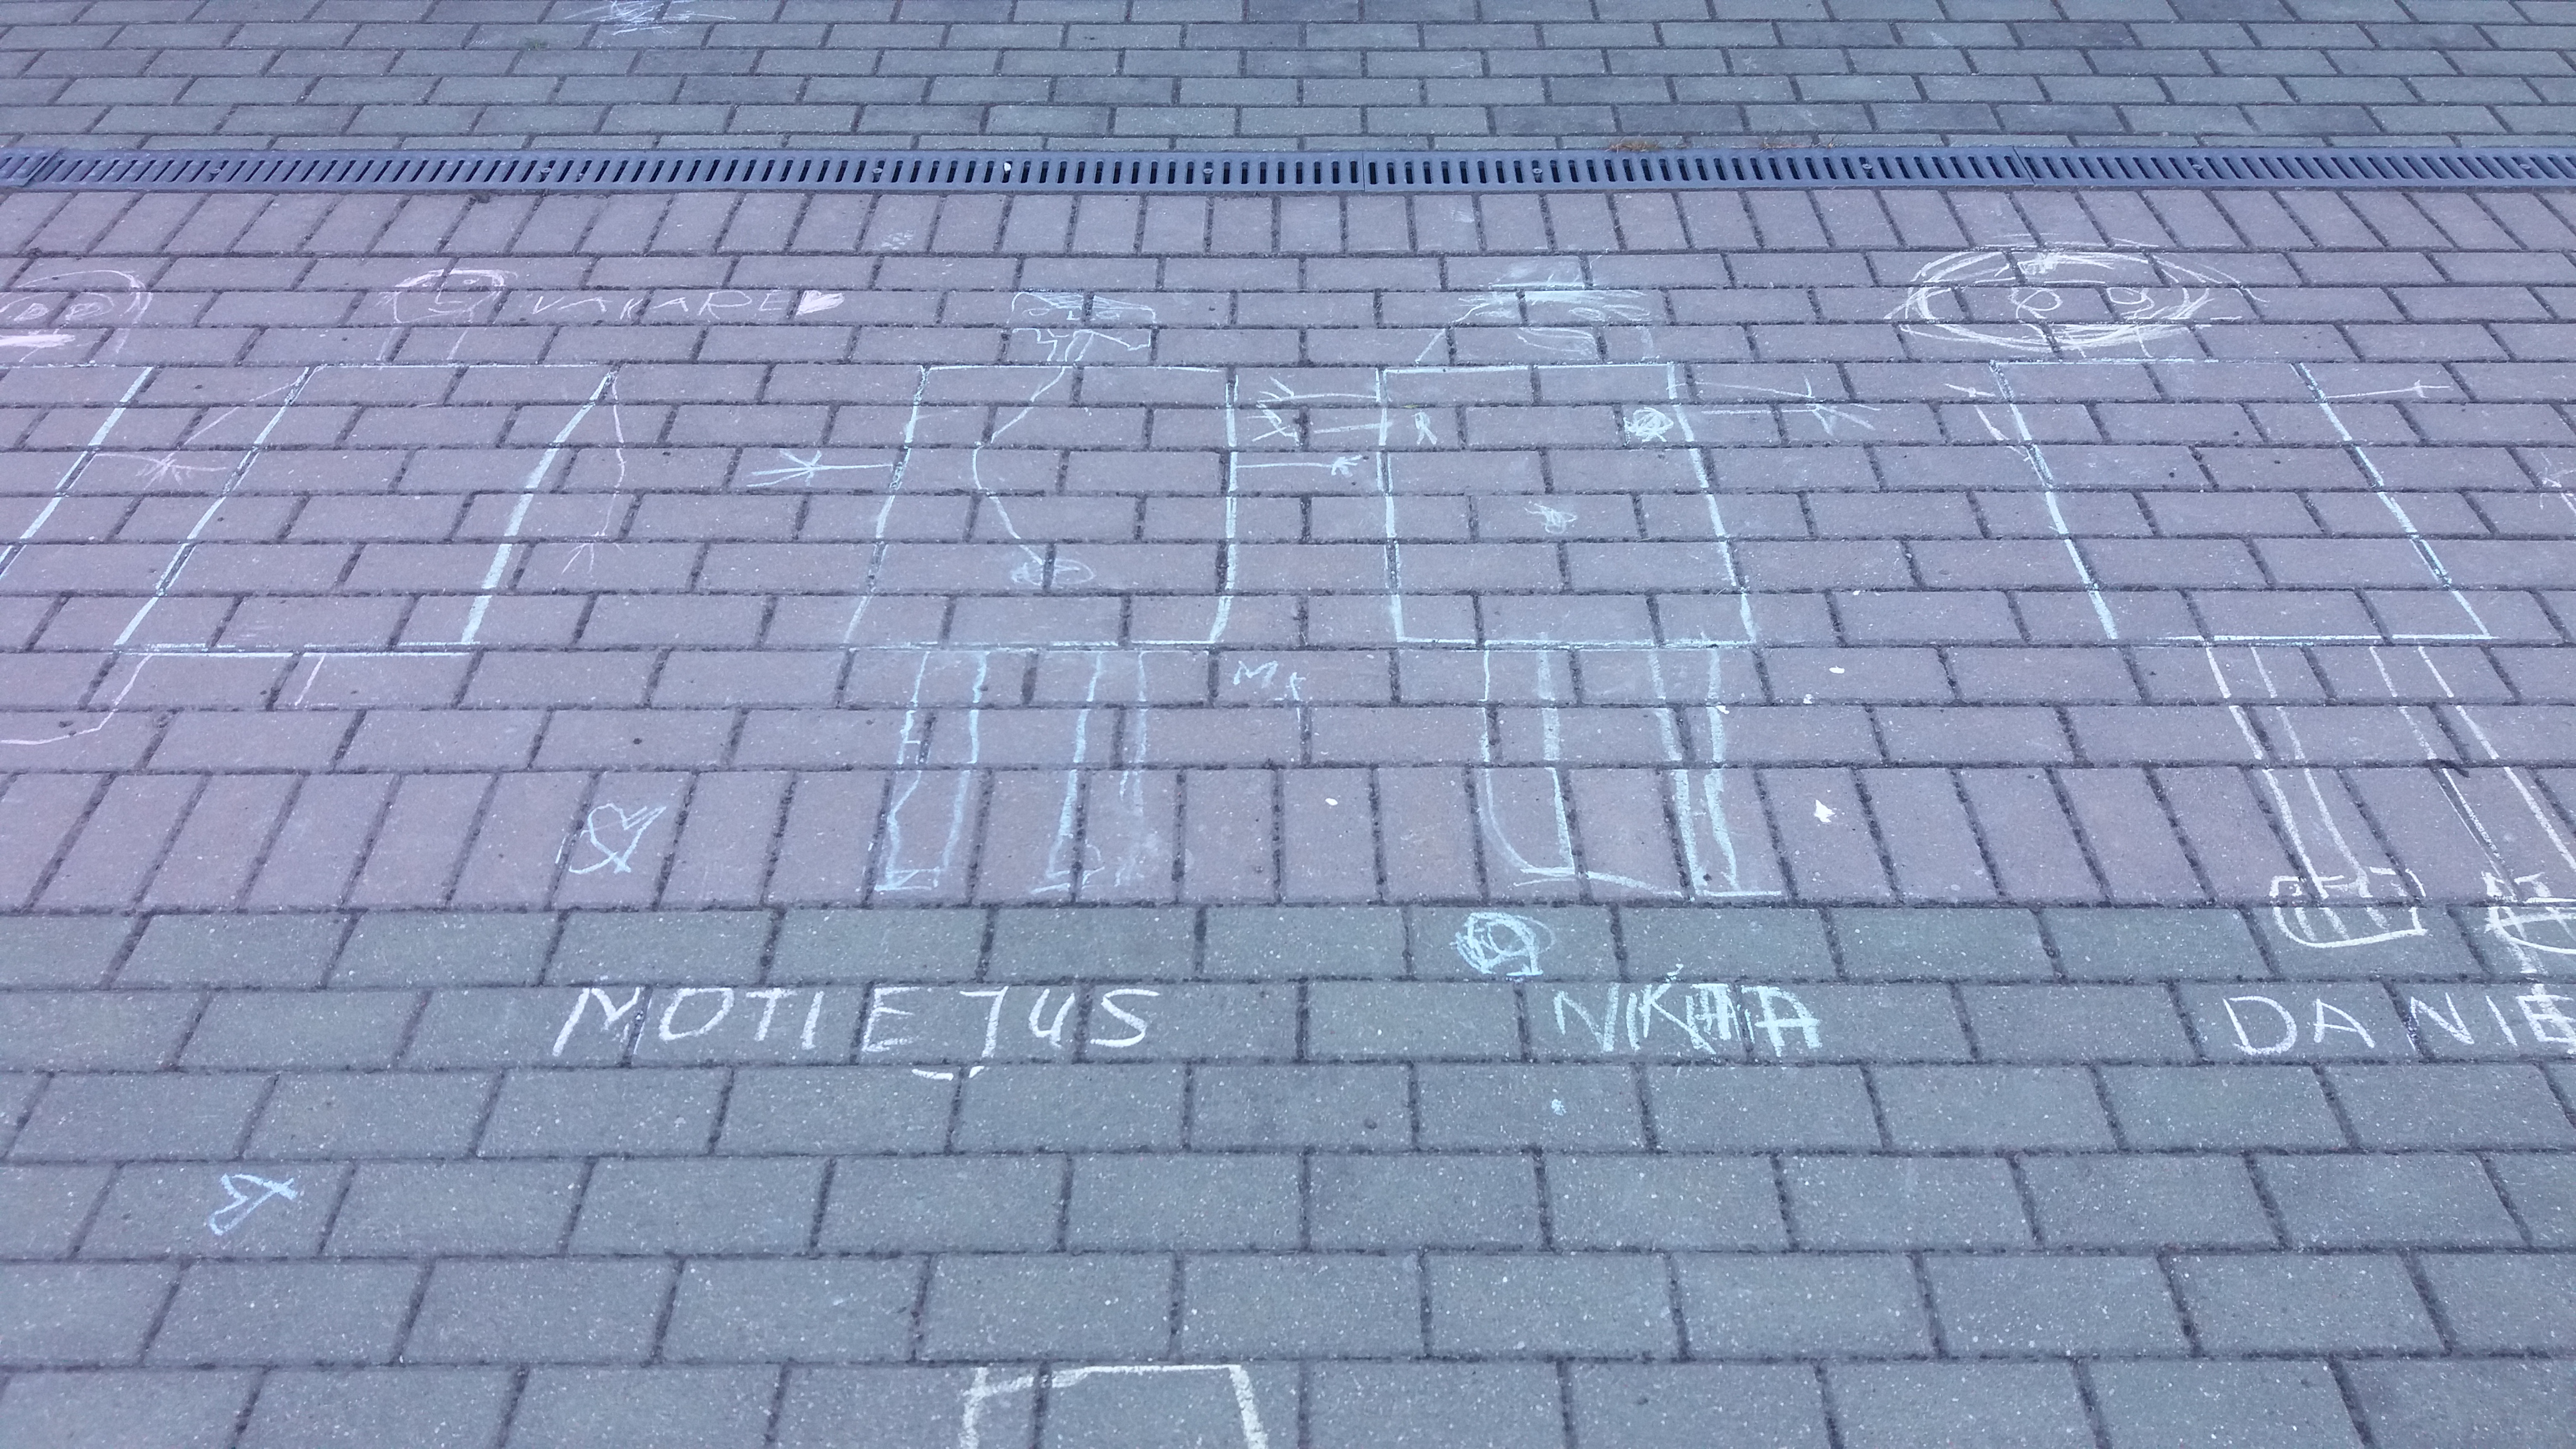 VAKARĖ
R
M
MOTIEJUS
NIKITA
DANIE